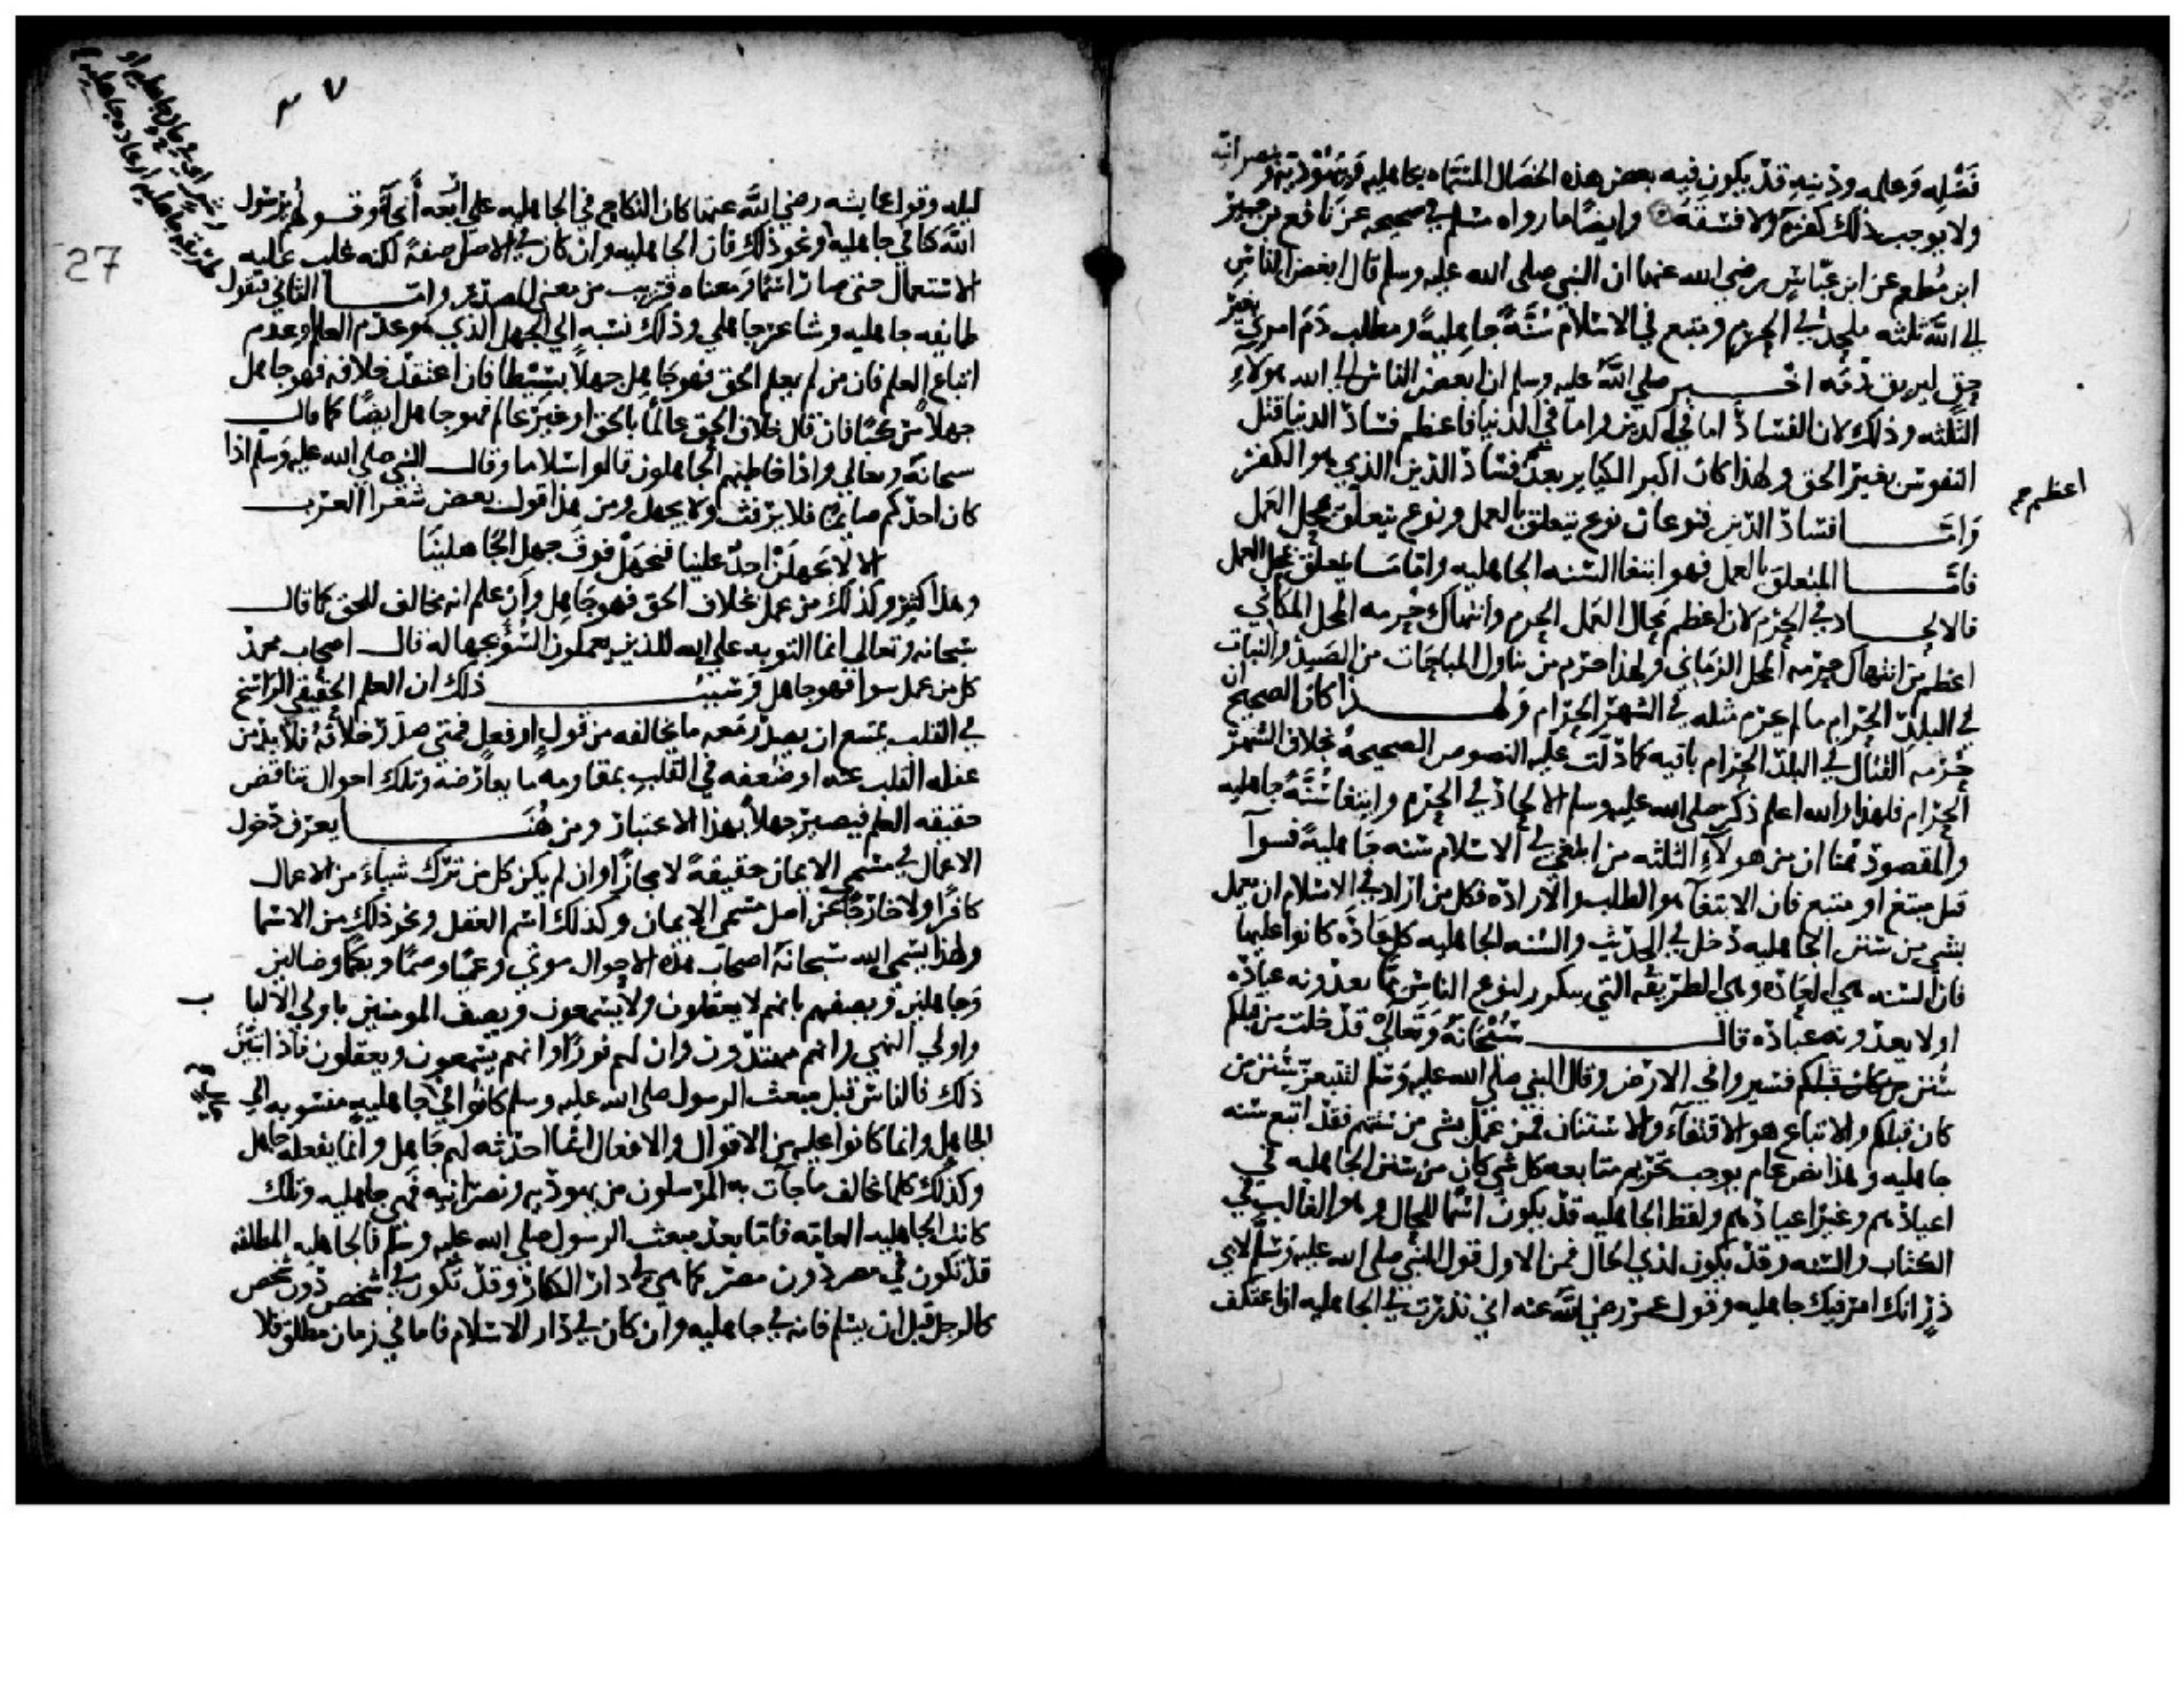 فضله وعلمه ودينه قد يكون فيه بعض هذه الخصال المسماه بجاهليه ويهوديه ونصرانيه
ولا يوجب ذلك كفره ولا فسقه وايضا ما رواه مسلم في صحيحه عن نافع بن جبير
ابن مطعم عن ابن عباس رضي الله عنهما ان النبي صلى الله عليه وسلم قال ابغض الناس
الي الله ثلثه ملحد في الحرم ومتبع في الاسلام سنة جاهلية ومطلب دم امرئ بغير
حق ليريق دمه اخبر صلي الله عليه وسلم ان ابغض الناس الى الله هولاء
الثلثه وذلك لان الفساد اما في الدين واما في الدنيا فاعظم فساد الدنيا قتل
النفوس بغير الحق ولهذا كان اكبر الكباير بعد فساد الدين الذي هو الكفر
اعظم
واما فساد الدين فنوعان نوع يتعلق بالعمل ونوع يتعلق بمحل العمل
فاما المتعلق بالعمل فهو ابتغا السنه الجاهليه واما ما يتعلق بمحل العمل
فالالحاد في الحرم لان اعظم محال العمل الحرم وانتهاك حرمه المحل المكاني
اعظم من انتهاك حرمه المحل الزماني ولهذا حرم من تناول المباحات من الصيد والنبات
في البلد الحرام ما لم يحرم مثله في الشهر الحرام ولهذا كان الصحيح ان
حرمه القتال في البلد الحرام باقيه كما دلت عليه النصوص الصحيحه بخلاف الشهر
الحرام فلهذا والله اعلم ذكر صلى الله عليه وسلم الالحاد في الحرم وابتغا سنة جاهليه
والمقصود هنا ان من هولاء الثلثه من ابتغى في الاسلام سنه جاهلية فسوآ
قيل مبتغ او متبع فان الابتغآ هو الطلب والاراده فكل من اراد في الاسلام ان يعمل
بشي من سنن الجاهليه دخل في الحديث والسنه الجاهليه كل عادة كانوا عليها
فان السنه هي العاده وهي الطريقه التي تتكرر لنوع الناس مما يعدونه عبادة
او لا يعدونه عباده قال سبحانه وتعالى قد خلت من قبلكم
سنن فسيروا في الارض وقال النبي صلى الله عليه وسلم لتتبعن سنن من
كان قبلكم والاتباع هو الاقتفاء والاستنان فمن عمل بشي من سننهم فقد اتبع سنه
جاهليه وهذا نص عام يوجب تحريم متابعه كل شي كان من سنن الجاهليه في
اعيادهم وغير اعيادهم ولفظ الجاهليه قد يكون اسما للحال وهو الغالب في
الكتاب والسنه وقد يكون لذي الحال فمن الاول قول النبي صلى الله عليه وسلم لابي
ذر انك امرؤ فيك جاهليه وقول عمر رضي الله عنه اني نذرت في الجاهليه ان اعتكف
27
ليله وقول عايشه رضي الله عنها كان النكاح في الجاهليه علي اربعه أنحآء وقولهم يرسول
الله كنا في جاهليه وشر ونحو ذلك فان الجاهليه وان كان في الاصل صفة لكنه غلب عليه
الاستعمال حتى صار اسما ومعناه قريب من معنى المصدر واما الثاني فتقول
طايفه جاهليه وشاعر جاهلي وذلك نسبه الي الجهل الذي هو عدم العلم او عدم
اتباع العلم فان من لم يعلم الحق فهو جاهل جهلا بسيطا فان اعتقد خلافه فهو جاهل
جهلا مركبا فان قال خلاف الحق عالما بالحق او غير عالم فهو جاهل ايضا كما قال
سبحانه وتعالى واذا خاطبهم الجاهلون قالوا سلاما وقال النبي صلى الله عليه وسلم اذا
كان احدكم صايما فلا يرفث ولا يجهل ومن هذا قول بعض شعرا العرب
الا لا يجهلن احد علينا فنجهل فوق جهل الجاهلينا
وهذا كثير وكذلك من عمل بخلاف الحق فهو جاهل وان علم انه مخالف للحق كما قال
سبحانه وتعالى انما التوبه على الله للذين يعملون السوء بجهاله قال اصحاب محمد
كل من عمل سوا فهو جاهل وسبب ذلك ان العلم الحقيقي الراسخ
في القلب يمتنع ان يصدر معه ما يخالفه من قول او فعل فمتى صدر خلافه فلا بد من
غفله القلب عنه او ضعفه في القلب بمقاومه ما يعارضه وتلك احوال تناقض
حقيقه العلم فيصير جهلا بهذا الاعتبار ومن هنا يعرف دخول
الاعمال في مسمى الايمان حقيقة لا مجازا وان لم يكن كل من ترك شياء من الاعمال
كافرا ولا خارجا عن اصل مسمى الايمان وكذلك اسم العقل ونحو ذلك من الاسما
ولهذا يسمي الله سبحانه اصحاب هذه الاحوال موتى وعميا وصما وبكما وضالين
وجاهلين ويصفهم بانهم لا يعقلون ولا يسمعون ويصف المومنين باولي الالباب
واولي النهى وانهم مهتدون وان لهم نورا وانهم يسمعون ويعقلون فاذا تبين
ذلك فالناس قبل مبعث الرسول صلى الله عليه وسلم كانوا في جاهليه منسوبه الي
الجاهل وانما كانوا عليه من الاقوال والافعال انما احدثه لهم جاهل وانما يفعله جاهل
وكذلك كلما يخالف ما جآت به المرسلون من يهوديه ونصرانيه فهي جاهليه وتلك
كانت الجاهليه العامه فاما بعد مبعث الرسول صلى الله عليه وسلم فالجاهليه المطلقه
قد تكون في مصر دون مصر كما هي في دار الكفار وقد تكون في شخص دون شخص
كالرجل قبل ان يسلم فانه في جاهليه وان كان في دار الاسلام فاما في زمان مطلق فلا